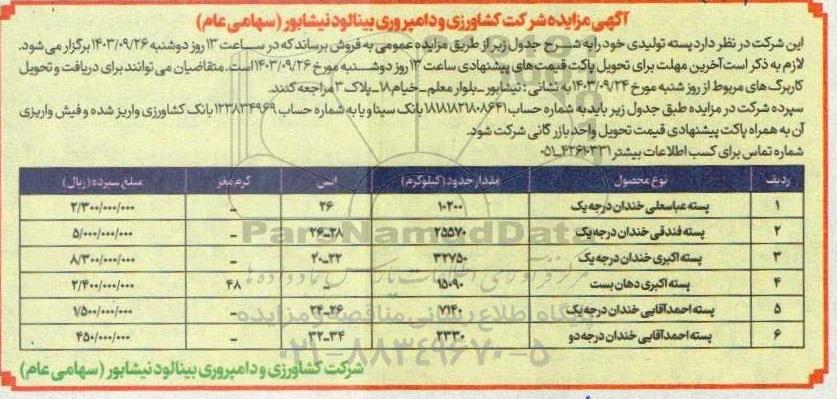 آگهی مزایده شرکت کشاورزی و دامپروری بینالود نیشابور (سهامی عام)
این شرکت در نظر دارد پسته تولیدی خود را به شرح جدول زیر از طریق مزایده عمومی به فروش برساند که در ساعت ۱۳ روز دوشنبه ۱۴۰۳/۰۹/۲۶ برگزار می شود.
لازم به ذکر است آخرین مهلت برای تحویل پاکت قیمت های پیشنهادی ساعت ۱۳ روز دوشنبه مورخ ۱۴۰۳/۰۹/۲۶ است. متقاضیان می توانند برای دریافت و تحویل
کاربرگ های مربوط از روز شنبه مورخ ۱۴۰۳/۰۹/۲۴ به نشانی: نیشابور_بلوار معلم_خیام ۱۸_پلاک ۳ مراجعه کنند.
سپرده شرکت در مزایده طبق جدول زیر باید به شماره حساب ۱۸۱۸۱۸۲۱۸۰۸۶۴۱ بانک سینا و یا به شماره حساب ۱۲۳۸۳۴۹۶۹ بانک کشاورزی واریز شده و فیش واریزی
آن به همراه پاکت پیشنهادی قیمت تحویل واحد بازرگانی شرکت شود.
شماره تماس برای کسب اطلاعات بیشتر ۴۲۶۱۰۳۳۱_۰۵۱
ردیف نوع محصول مقدار حدود (کیلوگرم) انس گرم مغز مبلغ سپرده (ریال)
۱ پسته عباسعلی خندان درجه یک ۱۰۲۰۰ ۲۶ _ ۲/۳۰۰/۰۰۰/۰۰۰
۲ پسته فندقی خندان درجه یک ۲۵۵۷۰ ۲۸_۲۶ _ ۵/۰۰۰/۰۰۰/۰۰۰
۳ پسته اکبری خندان درجه یک ۳۲۷۵۰ ۲۲_۲۰ _ ۸/۳۰۰/۰۰۰/۰۰۰
۴ پسته اکبری دهان بست ۱۵۰۹۰ _ ۴۸ ۲/۴۰۰/۰۰۰/۰۰۰
۵ پسته احمدآقایی خندان درجه یک ۷۱۴۰ ۲۶_۲۴ _ ۱/۵۰۰/۰۰۰/۰۰۰
۶ پسته احمدآقایی خندان درجه دو ۲۳۳۰ ۳۴_۳۲ _ ۴۵۰/۰۰۰/۰۰۰
شرکت کشاورزی و دامپروری بینالود نیشابور (سهامی عام)
ParsNamadData
مرکز فرآوری اطلاعات پارس نماد داده ها
پایگاه اطلاع رسانی مناقصه و مزایده
۰۲۱-۸۸۳۴۹۶۷۰-۵